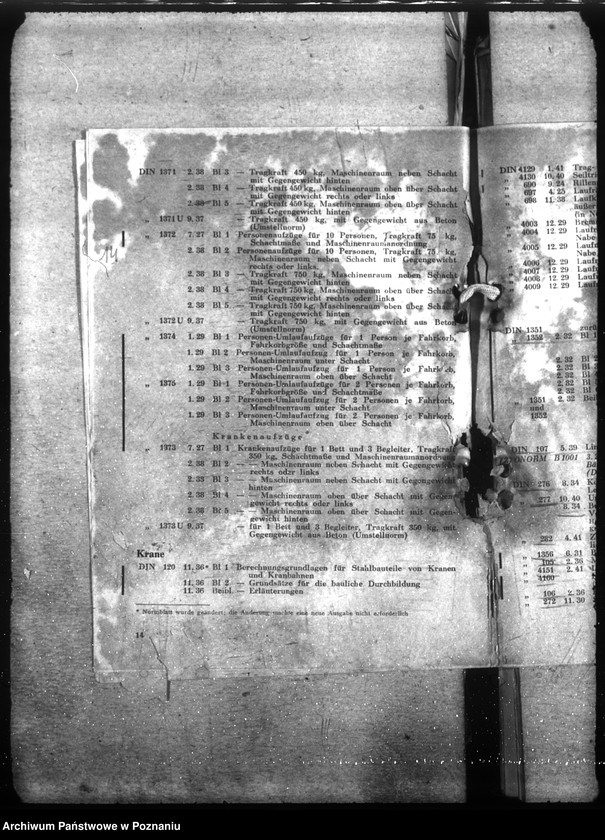 DIN 1371 2.38 Bl 3 — Tragkraft 450 kg, Maschinenraum neben Schacht
mit Gegengewicht hinten
2.38 Bl 4 — Tragkraft 450 kg, Maschinenraum oben über Schacht
mit Gegengewicht rechts oder links
2.38 Bl 5 — Tragkraft 450 kg, Maschinenraum oben über Schacht
mit Gegengewicht hinten
„ 1371 U 9.37 — Tragkraft 450 kg, mit Gegengewicht aus Beton
(Umstellnorm)
„ 1372 7.27 Bl 1 Personenaufzüge für 10 Personen, Tragkraft 75 kg,
Schachtmaße und Maschinenraumanordnung
2.38 Bl 2 Personenaufzüge für 10 Personen, Tragkraft 75 kg,
Maschinenraum neben Schacht mit Gegengewicht
rechts oder links
2.38 Bl 3 — Tragkraft 750 kg, Maschinenraum neben Schacht
mit Gegengewicht hinten
2.38 Bl 4 — Tragkraft 750 kg, Maschinenraum oben über Schacht
mit Gegengewicht rechts oder links
2.38 Bl 5 — Tragkraft 750 kg, Maschinenraum oben über Schacht
mit Gegengewicht hinten
„ 1372 U 9.37 — Tragkraft 750 kg, mit Gegengewicht aus Beton
(Umstellnorm)
„ 1374 1.29 Bl 1 Personen-Umlaufaufzug für 1 Person je Fahrkorb,
Fahrkorbgröße und Schachtmaße
1.29 Bl 2 Personen-Umlaufaufzug für 1 Person je Fahrkorb,
Maschinenraum unter Schacht
1.29 Bl 3 Personen-Umlaufaufzug für 1 Person je Fahrkorb,
Maschinenraum oben über Schacht
„ 1375 1.29 Bl 1 Personen-Umlaufaufzüge für 2 Personen je Fahrkorb,
Fahrkorbgröße und Schachtmaße
1.29 Bl 2 Personen-Umlaufaufzug für 2 Personen je Fahrkorb,
Maschinenraum unter Schacht
1.29 Bl 3 Personen-Umlaufaufzug für 2 Personen je Fahrkorb,
Maschinenraum oben über Schacht
Krankenaufzüge
„ 1373 7.27 Bl 1 Krankenaufzüge für 1 Bett und 3 Begleiter, Tragkraft
350 kg, Schachtmaße und Maschinenraumanordnung
2.38 Bl 2 — — Maschinenraum neben Schacht mit Gegengewicht
rechts oder links
2.38 Bl 3 — — Maschinenraum neben Schacht mit Gegengewicht
hinten
2.38 Bl 4 — — Maschinenraum oben über Schacht mit Gegen-
gewicht rechts oder links
2.38 Bl 5 — — Maschinenraum oben über Schacht mit Gegen-
gewicht hinten
„ 1373 U 9.37 — für 1 Bett und 3 Begleiter, Tragkraft 350 kg, mit
Gegengewicht aus Beton (Umstellnorm)
Krane
DIN 120 11.36* Bl 1 Berechnungsgrundlagen für Stahlbauteile von Kranen
und Kranbahnen
11.36 Bl 2 — Grundsätze für die bauliche Durchbildung
11.36 Beibl. — Erläuterungen
* Normblatt wurde geändert; die Änderung machte eine neue Ausgabe nicht erforderlich
14
DIN 4129 1.41 Trag-
„ 4130 10.40 Seiltri
„ 690 9.24 Rillen
„ 697 4.25 Laufr
„ 698 11.38 Laufk
außer
(in N
„ 4003 12.29
„ 4004 12.29 Laufr
Nabe
„ 4005 12.29 Laufr
Nabe
„ 4006 12.29 Laufr
„ 4007 12.29 Laufr
„ 4008 12.29 Laufr
„ 4009 12.29 Laufr
DIN 1351 zurü
„ 1352 2.32 Bl 1
2.32 Bl 2
2.32 Bl
2.32 Bl
2.32 Bl
2.32 Bl
„ 1351 2.32 Beibl
und
1352
DIN 107 5.39
B 1001
DIN 276 8.34
277 10.40
8.34
„ 282 4.41
„ 1356 6.31
„ 105 2.36
„ 4151 2.41
„ 4160
„ 106 2.36
„ 272 11.30
Archiwum Państwowe w Poznaniu